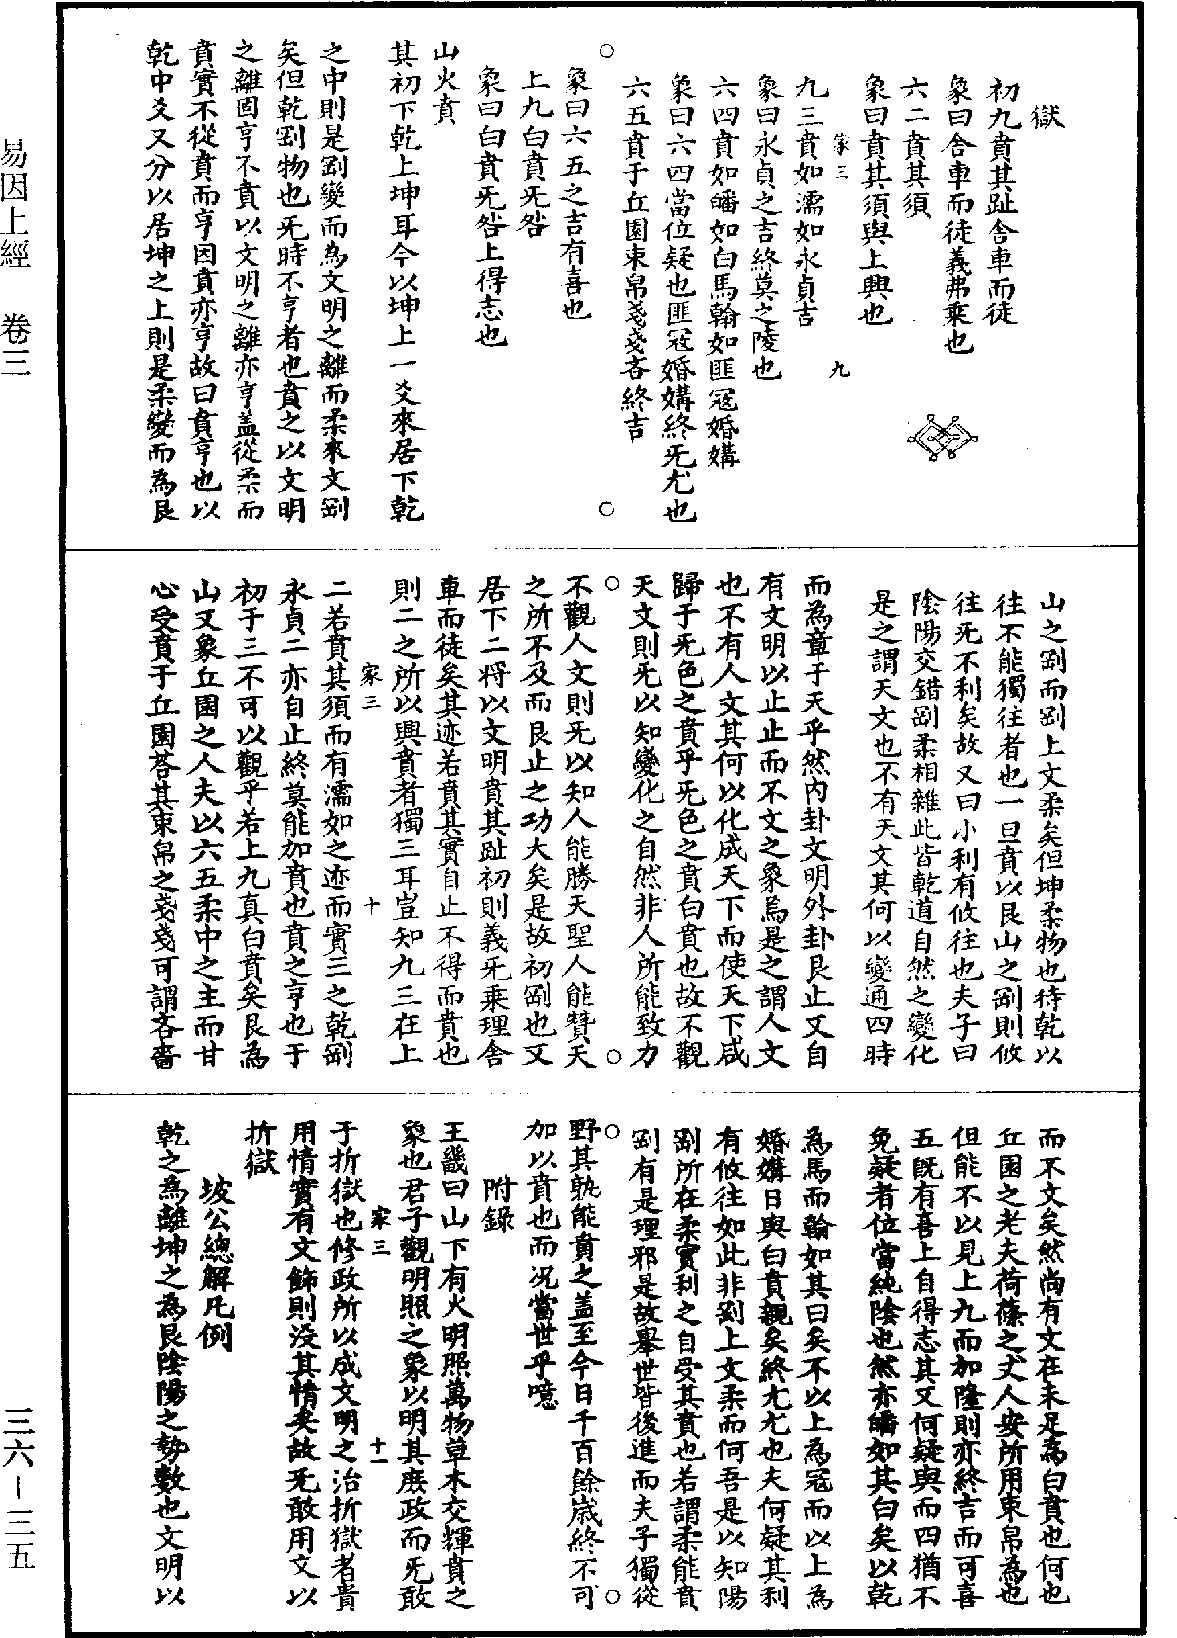 獄
初九賁其趾舍車而徒
象曰舍車而徒義弗乘也
六二賁其須
象曰賁其須與上興也
家三　九
九三賁如濡如永貞吉
象曰永貞之吉終莫之陵也
六四賁如皤如白馬翰如匪冦婚媾
象曰六四當位疑也匪冦婚媾終旡尤也
六五賁于丘園束帛戔戔吝終吉
象曰六五之吉有喜也
上九白賁旡咎
象曰白賁旡咎上得志也
山火賁
其初下乾上坤耳今以坤上一爻來居下乾
之中則是剛變而為文明之離而柔來文剛
矣但乾剛物也旡時不亨者也賁之以文明
之離固亨不賁以文明之離亦亨盖從柔而
賁實不從賁而亨因賁亦亨故曰賁亨也以
乾中爻又分以居坤之上則是柔變而為艮
山之剛而剛上文柔矣但坤柔物也待乾以
往不能獨往者也一旦賁以艮山之剛則攸
往旡不利矣故又曰小利有攸往也夫子曰
陰陽交錯剛柔相雜此皆乾道自然之變化
是之謂天文也不有天文其何以變通四時
而為章于天乎然內卦文明外卦艮止又自
有文明以止止而不文之象焉是之謂人文
也不有人文其何以化成天下而使天下咸
歸于旡色之賁乎旡色之賁白賁也故不觀
天文則旡以知變化之自然非人所能致力
不觀人文則旡以知人能勝天聖人能贊天
之所不及而艮止之功大矣是故初剛也又
居下二將以文明賁其趾初則義旡乘理舍
車而徒矣其迹若賁其實自止不得而賁也
則二之所以興賁者獨三耳豈知九三在上
家三　十
二若賁其須而有濡如之迹而實三之乾剛
永貞二亦自止終莫能加賁也賁之亨也于
初于三不可以觀乎若上九真白賁矣艮為
山又象丘園之人夫以六五柔中之主而甘
心受賁于丘園荅其束帛之戔戔可謂吝嗇
而不文矣然尚有文在未足為白賁也何也
丘園之老夫荷蓧之丈人安所用束帛為也
但能不以見上九而加隆則亦終吉而可喜
五既有喜上自得志其又何疑與而四猶不
免疑者位當純陰也然亦皤如其白矣以乾
為馬而翰如其曰矣不以上為冦而以上為
婚媾日與白賁親矣終尤尤也夫何疑其利
有攸往如此非剛上文柔而何吾是以知陽
剛所在柔實利之自受其賁也若謂柔能賁
剛有是理邪是故舉世皆後進而夫子獨從
野其孰能賁之盖至今日千百餘歲終不可
加以賁也而况當世乎噫
附錄
王畿曰山下有火明照萬物草木交輝賁之
象也君子觀明照之象以明其庶政而旡敢
家三　十一
于折獄也修政所以成文明之治折獄者貴
用情實有文飾則没其情矣故旡敢用文以
折獄
坡公總解凡例
乾之為離坤之為艮陰陽之勢數也文明以
易因上經　卷三
三六－三五